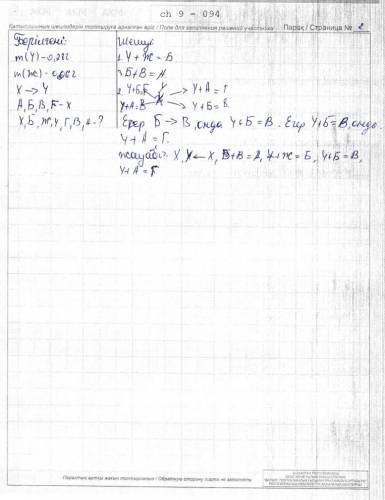 ch 9 - 094
Қатысушының шешімдерін толтыруға арналған өріс / Поле для заполнения решений участника
Парақ / Страница № 2
Берілгені:
m(Y)-0,232
m(Ж)-0,062
X → Y
А, Б, В, Г - X
X, Б, Ж, Y, Г, В, А - ?
Шешуі
1. Y + Ж = Б
2. Б + В = А
Y + А = Г
Y + Б = В
Егер Б → В, онда Y + Б = В. Егер Y+Б = В, онда
Y + А = Г.
Жауабы: X, Y ← X, Б+В = А, Y+Ж = Б, Y+Б = В,
Y + А = Г
Парақтың артқы жағын толтырмаңыз / Обратную сторону листа не заполнять